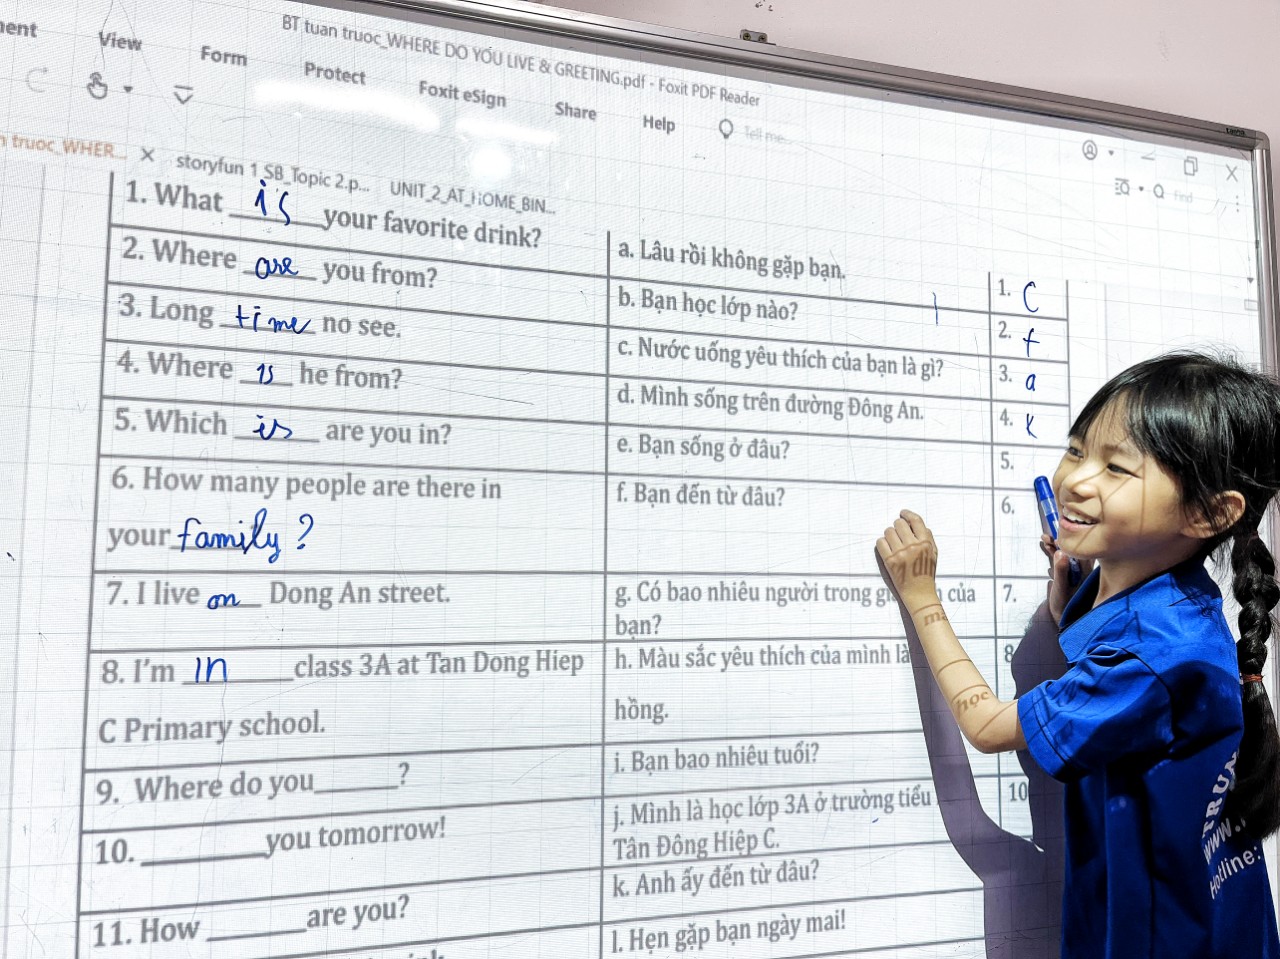 View Form Protect Foxit eSign Share Help Tell me...
BT tuan truoc_WHERE DO YOU LIVE & GREETING.pdf - Foxit PDF Reader
truoc_WHER... storyfun 1 SB_Topic 2.p... UNIT_2_AT_HOME_BIN...
Find
1. What is your favorite drink?
2. Where are you from?
3. Long time no see.
4. Where is he from?
5. Which is are you in?
6. How many people are there in
your family ?
7. I live on Dong An street.
8. I'm in class 3A at Tan Dong Hiep
C Primary school.
9. Where do you______?
10. ________you tomorrow!
11. How ______are you?
a. Lâu rồi không gặp bạn.
b. Bạn học lớp nào?
c. Nước uống yêu thích của bạn là gì?
d. Mình sống trên đường Đông An.
e. Bạn sống ở đâu?
f. Bạn đến từ đâu?
g. Có bao nhiêu người trong của
bạn?
h. Màu sắc yêu thích của mình là
hồng.
i. Bạn bao nhiêu tuổi?
j. Mình là học lớp 3A ở trường tiểu
Tân Đông Hiệp C.
k. Anh ấy đến từ đâu?
l. Hẹn gặp bạn ngày mai!
1. C
2. f
3. a
4. k
5.
6.
7.
8
10
học
www.
Hotline: